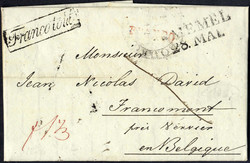 Franco tout
MEMEL
28. MAI
Monsieur
Jean Nicolas David
à Francomont
près Vervier
en Belgique